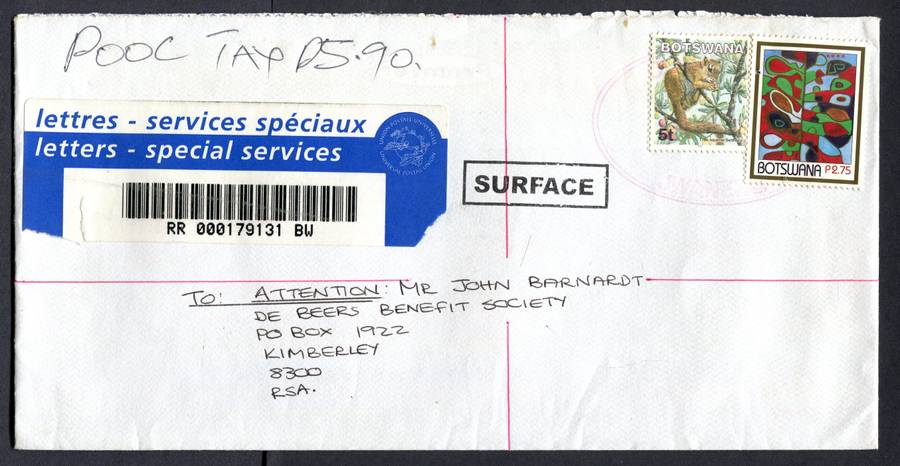 POOC TAX P5.90.
lettres - services spéciaux
letters - special services
UNION POSTALE UNIVERSELLE
UNIVERSAL POSTAL UNION
RR 000179131 BW
SURFACE
BOTSWANA
5t
BOTSWANA P2.75
TO: ATTENTION: MR JOHN BARNARDT
DE BEERS BENEFIT SOCIETY
PO BOX 1922
KIMBERLEY
8300
RSA.